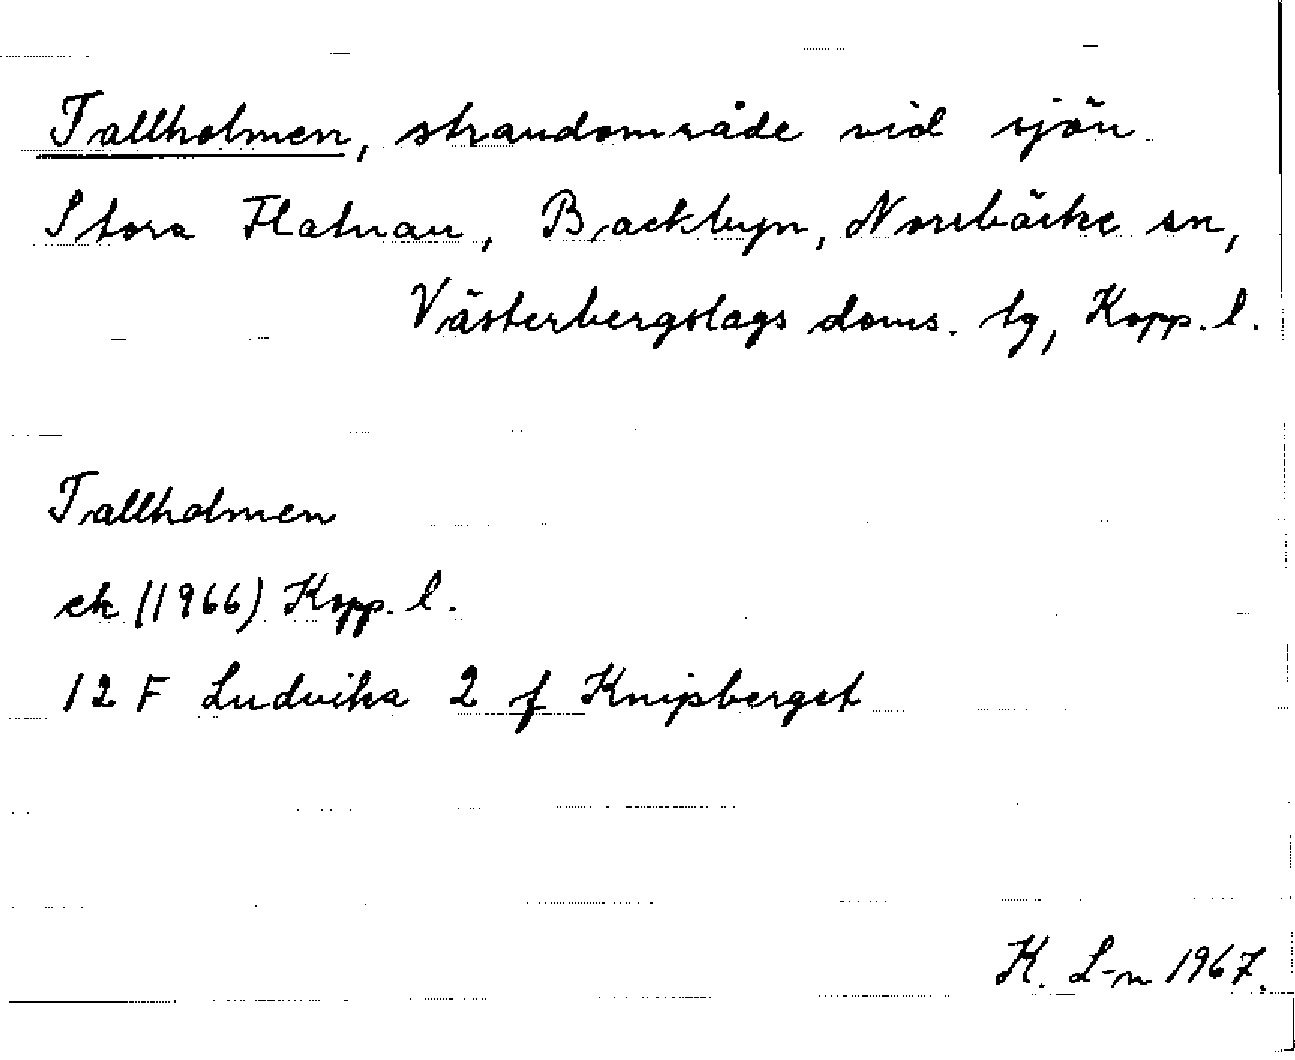 Tallholmen, strandområde vid sjön
Stora Flatnan, Backbyn, Norrbärke sn,
Västerbergslags doms. tg, Kopp. l.
Tallholmen
ek (1966) Kopp. l.
12 F Ludvika 2 f Knipberget
K. L-n 1967.